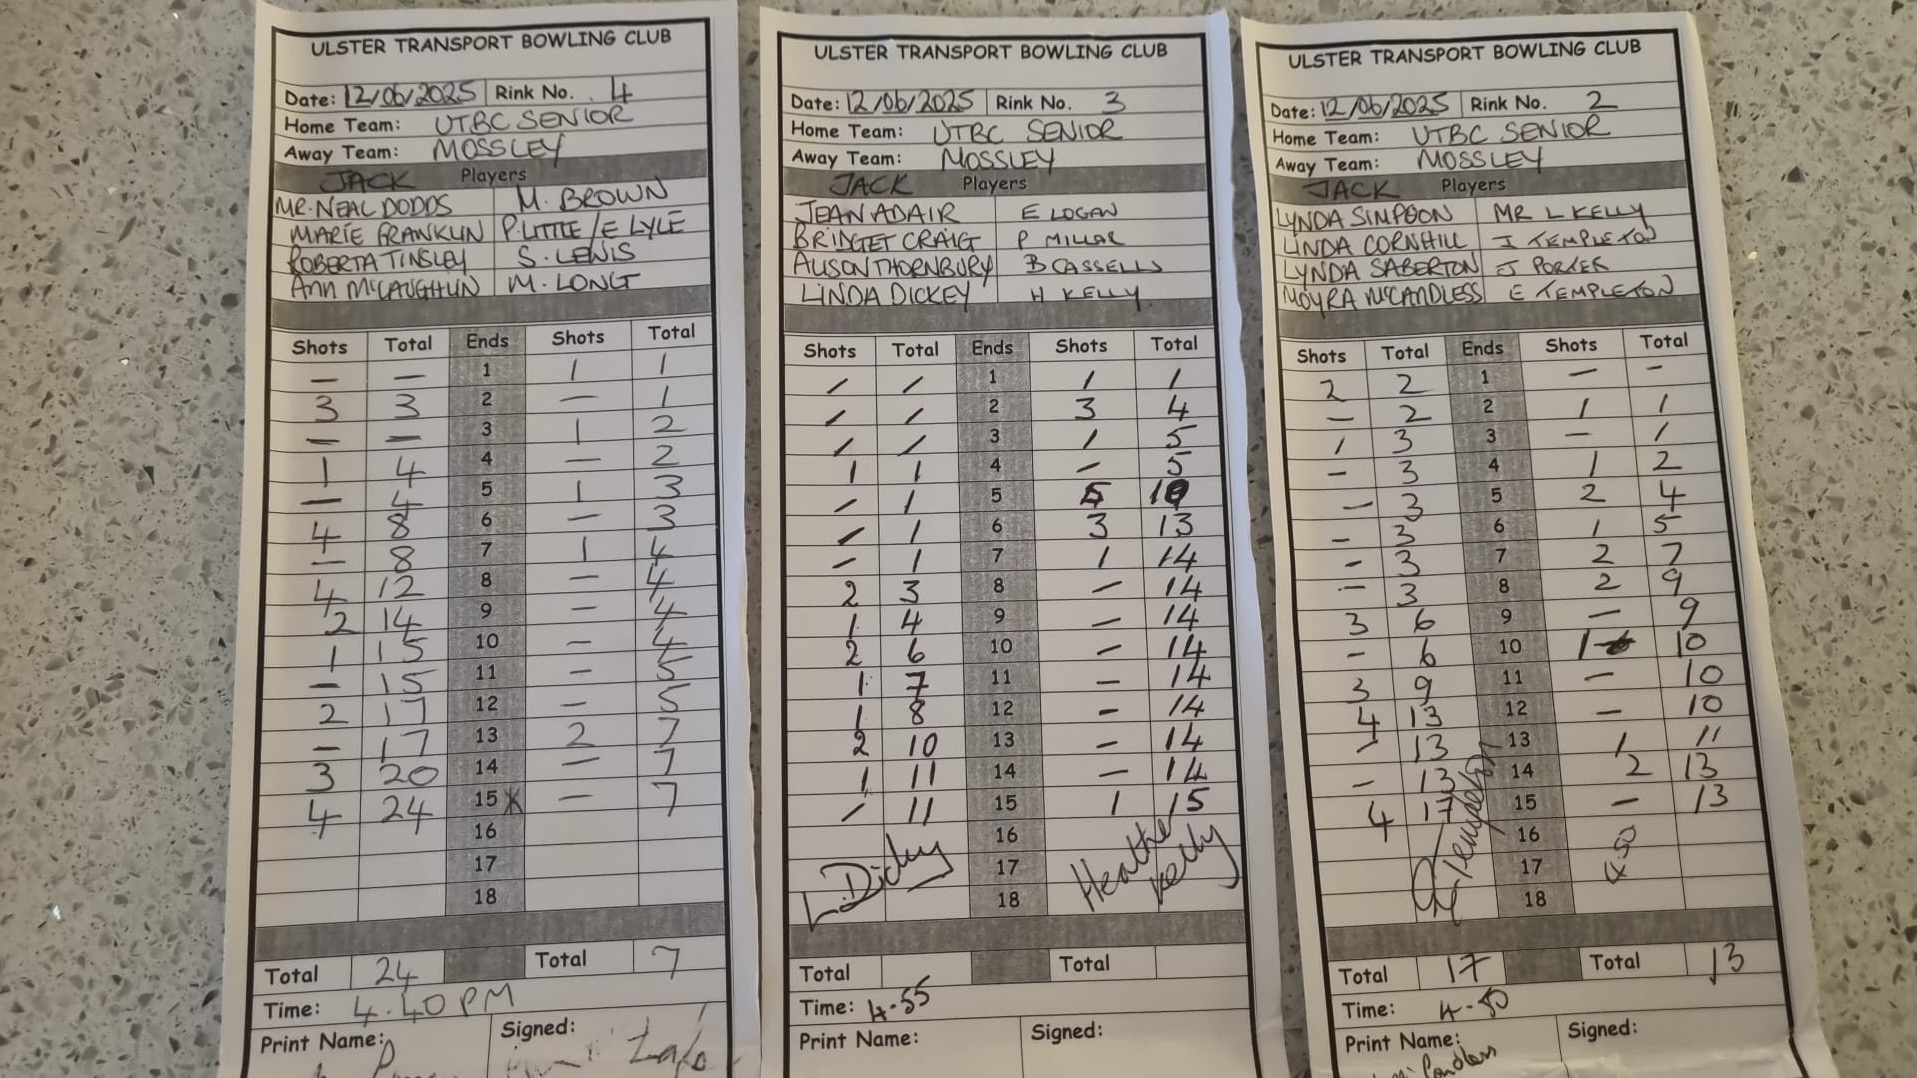 ULSTER TRANSPORT BOWLING CLUB
Date: 12/06/2025 Rink No. 4
Home Team: UTBC SENIOR
Away Team: MOSSLEY
JACK Players
MR. NEAL DODDS M. BROWN
MARIE FRANKLIN P. LITTLE / E LYLE
ROBERTA TINSLEY S. LEWIS
ANN McCAUGHLIN M. LONG
Shots Total Ends Shots Total
— — 1 1 1
3 3 2 — 1
— — 3 1 2
1 4 4 — 2
— 4 5 1 3
4 8 6 — 3
— 8 7 1 4
4 12 8 — 4
2 14 9 — 4
1 15 10 — 4
— 15 11 — 5
2 17 12 — 5
— 17 13 2 7
3 20 14 — 7
4 24 15 — 7
16
17
18
Total 24 Total 7
Time: 4.40 PM
Print Name: Signed:
ULSTER TRANSPORT BOWLING CLUB
Date: 12/06/2025 Rink No. 3
Home Team: UTBC SENIOR
Away Team: MOSSLEY
JACK Players
JEAN ADAIR E LOGAN
BRIDGET CRAIG P MILLAR
ALISON THORNBURY B CASSELLS
LINDA DICKEY H KELLY
Shots Total Ends Shots Total
/ / 1 1 1
/ / 2 3 4
/ / 3 1 5
1 1 4 - 5
/ 1 5 5 10
/ 1 6 3 13
- 1 7 1 14
2 3 8 - 14
1 4 9 - 14
2 6 10 - 14
1 7 11 - 14
1 8 12 - 14
2 10 13 - 14
1 11 14 - 14
/ 11 15 1 15
16
17
18
L. Dickey Heather Kelly
Total Total
Time: 4-55
Print Name: Signed:
ULSTER TRANSPORT BOWLING CLUB
Date: 12/06/2025 Rink No. 2
Home Team: UTBC SENIOR
Away Team: MOSSLEY
JACK Players
LYNDA SIMPSON MR L KELLY
LINDA CORNHILL I TEMPLETON
LYNDA SABERTON J PORTER
MOYRA McCANDLESS E TEMPLETON
Shots Total Ends Shots Total
2 2 1 - -
- 2 2 1 1
1 3 3 - 1
- 3 4 1 2
- 3 5 2 4
- 3 6 1 5
- 3 7 2 7
- 3 8 2 9
3 6 9 - 9
- 6 10 1 10
3 9 11 - 10
4 13 12 - 10
- 13 13 1 11
- 13 14 2 13
4 17 15 - 13
16
17
18
E Templeton 4.50
Total 17 Total 13
Time: 4-50
Print Name: Signed: